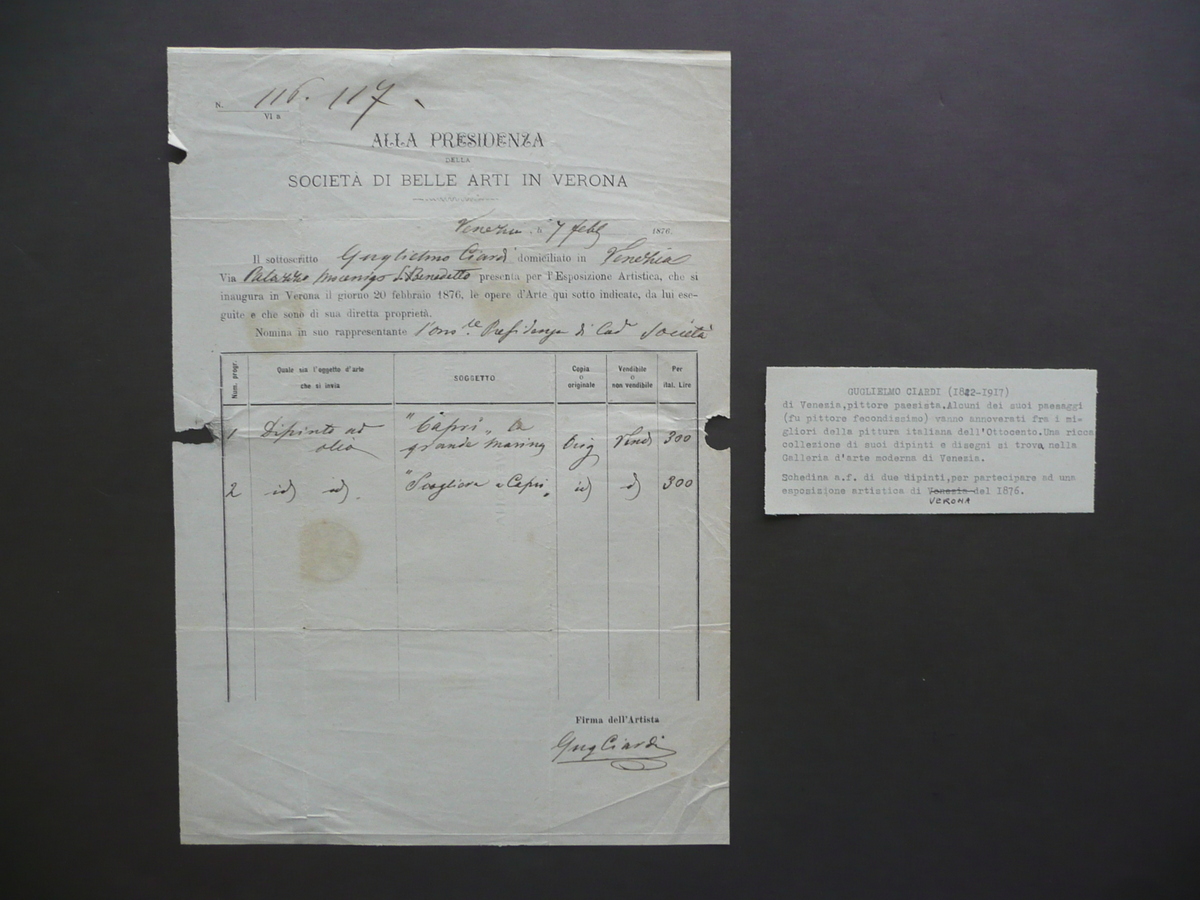 N. 116. 117
VI a
ALLA PRESIDENZA
DELLA
SOCIETÀ DI BELLE ARTI IN VERONA
Venezia, li 7 febb 1876.
Il sottoscritto Guglielmo Ciardi domiciliato in Venezia
Via Palazzo Mocenigo S. Benedetto presenta per l'Esposizione Artistica, che si
inaugura in Verona il giorno 20 febbraio 1876, le opere d'Arte qui sotto indicate, da lui ese-
guite e che sono di sua diretta proprietà.
Nomina in suo rappresentante l'ono.le Presidenza di Cod Società
Num. progr. Quale sia l'oggetto d'arte che si invia SOGGETTO Copia o originale Vendibile o non vendibile Per ital. Lire
1 Dipinto ad olio "Capri" la grande marina Orig Vend 300
2 id id "Scogliera a Capri" id id 300
Firma dell'Artista
Gug Ciardi
GUGLIELMO CIARDI (1842-1917)
di Venezia,pittore paesista.Alcuni dei suoi paesaggi
(fu pittore fecondissimo) vanno annoverati fra i mi-
gliori della pittura italiana dell'Ottocento.Una ricca
collezione di suoi dipinti e disegni si trova nella
Galleria d'arte moderna di Venezia.
Schedina a.f. di due dipinti,per partecipare ad una
esposizione artistica di Venezia del 1876.
VERONA